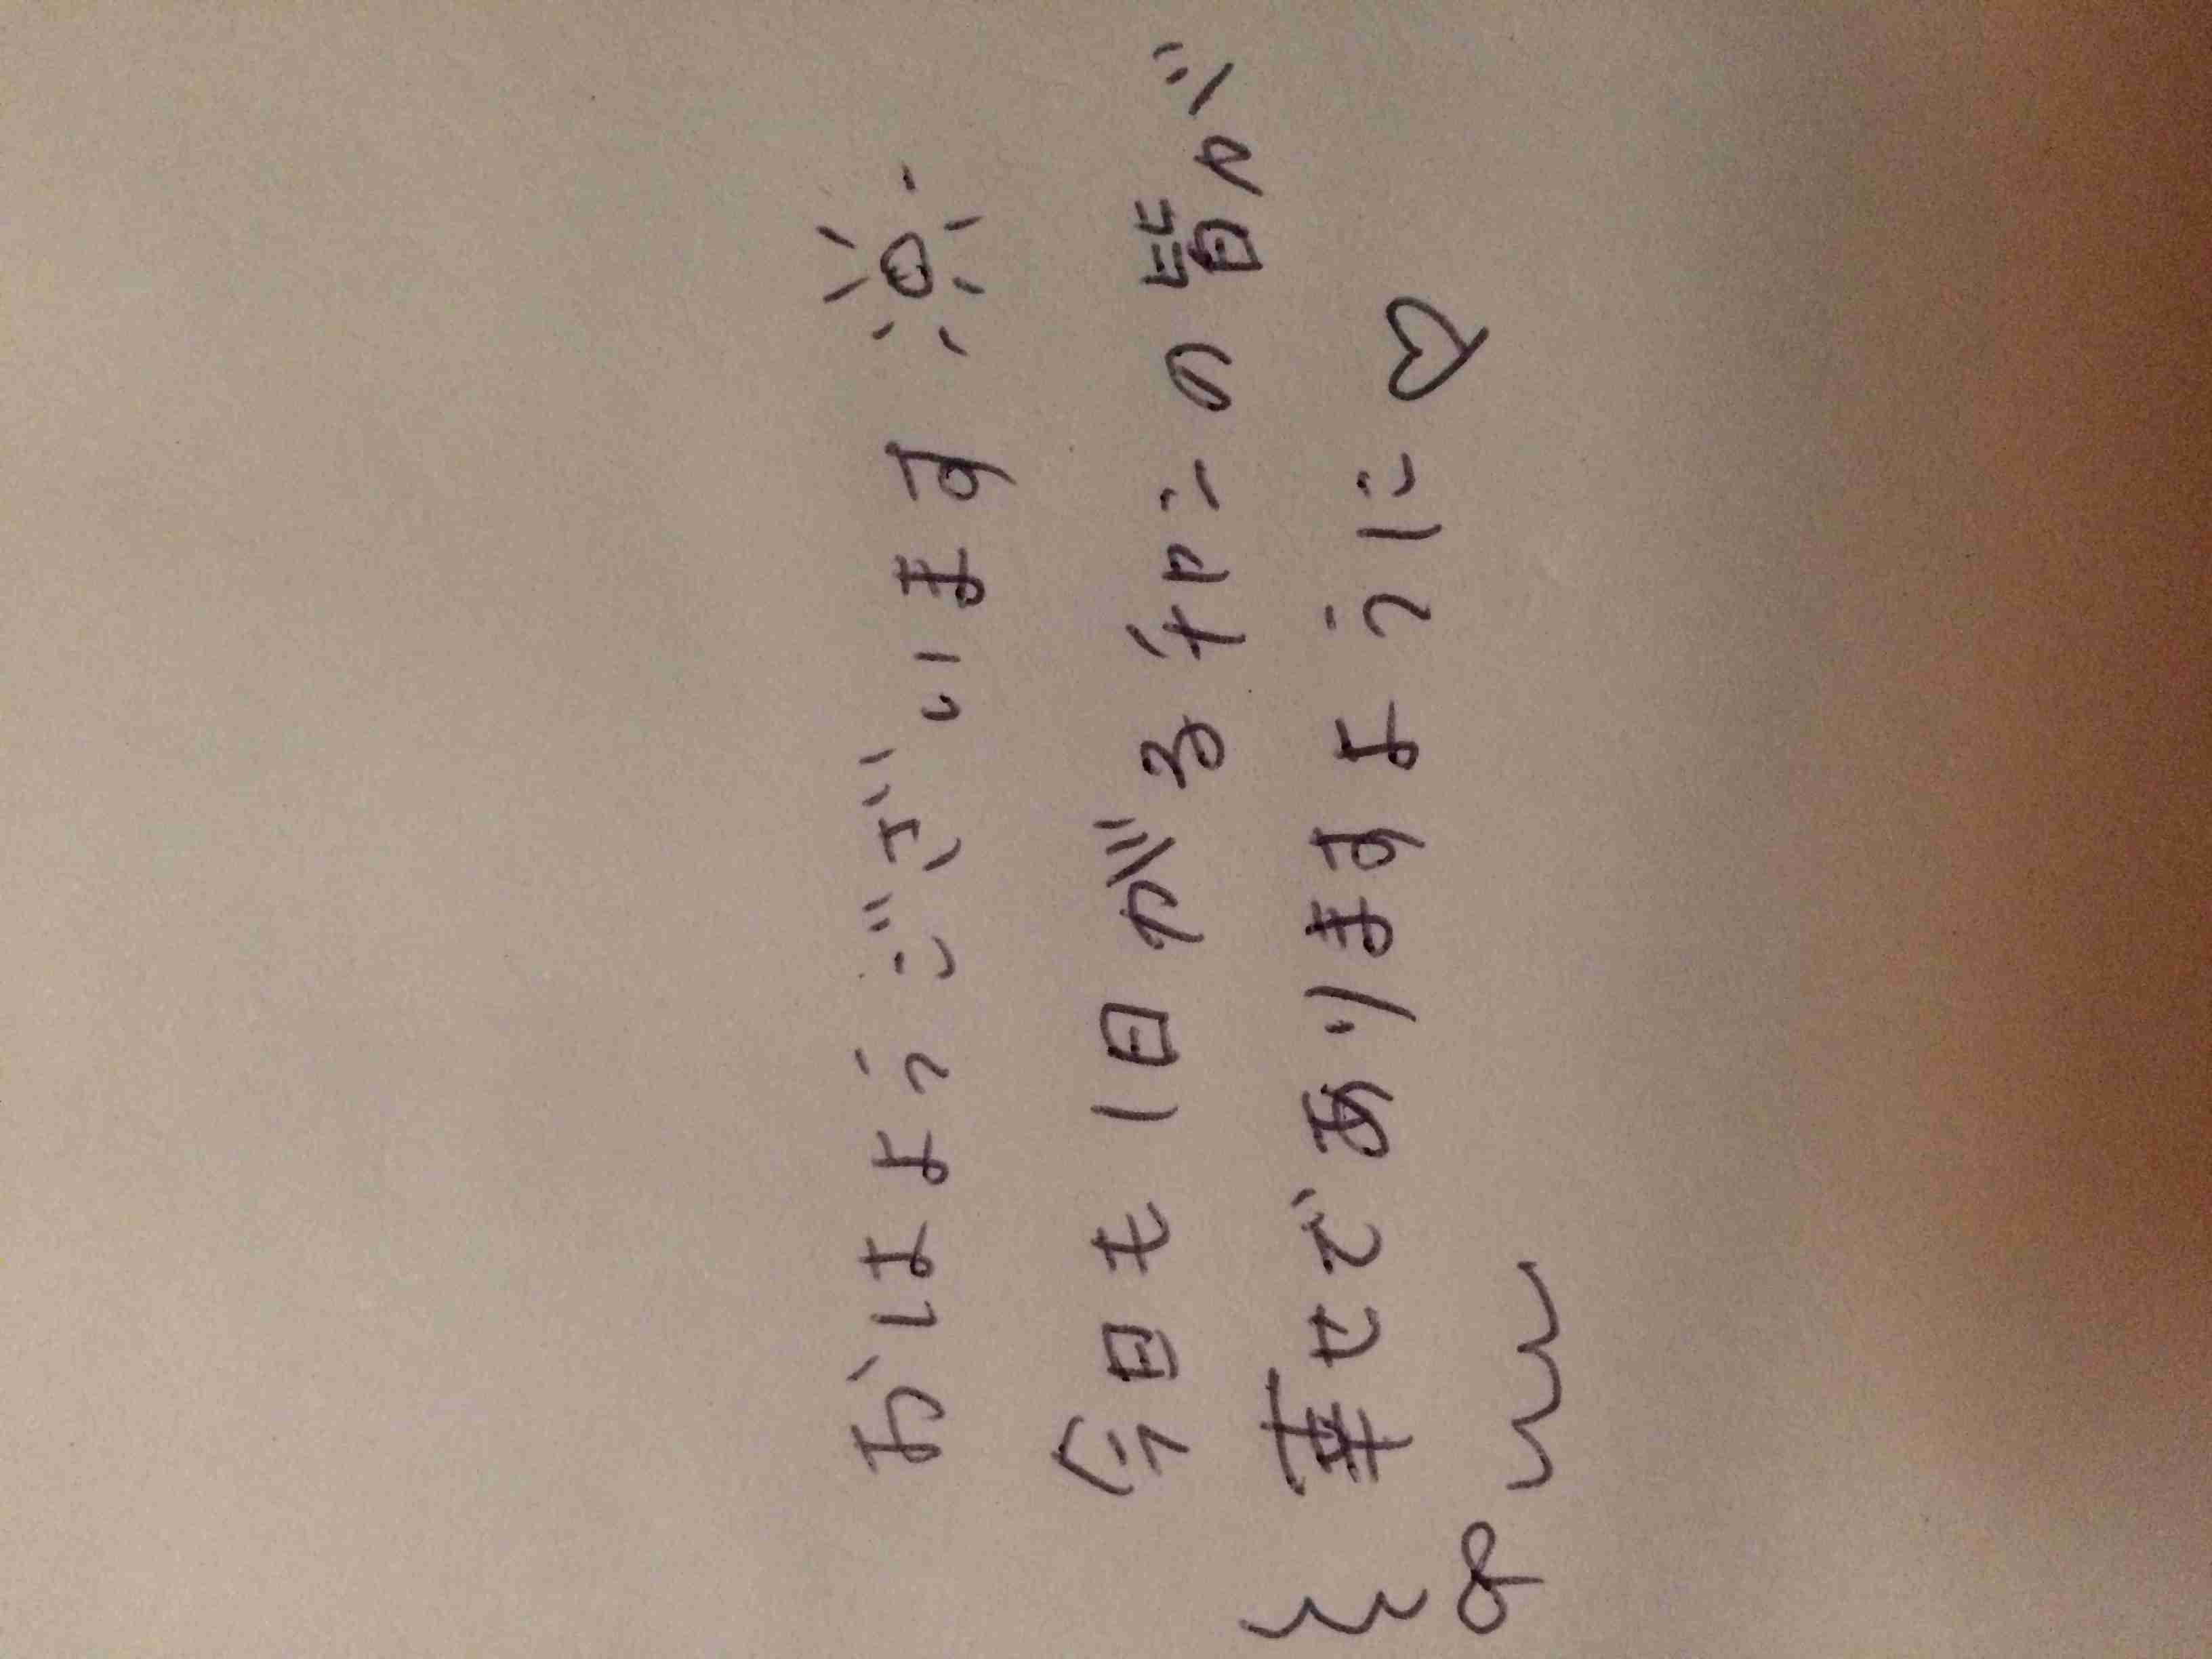 おはようございます
今日も1日がるチャンの皆が
幸せでありますように♡